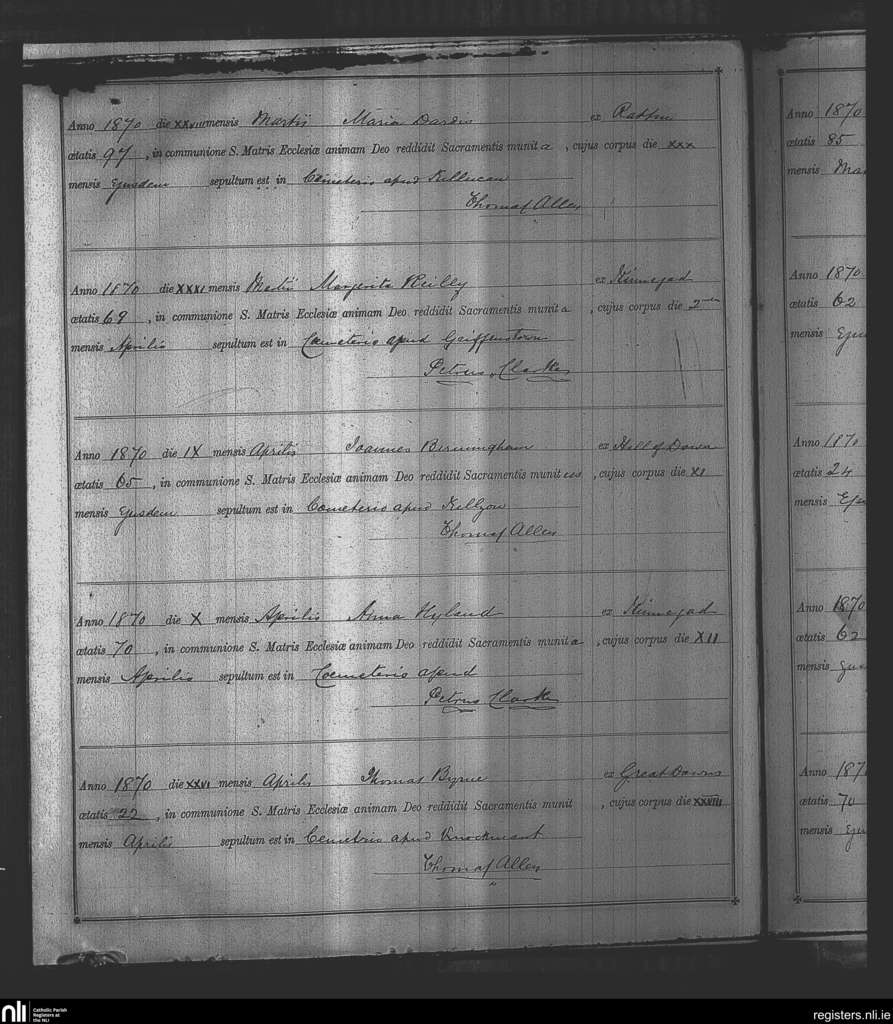 Anno 1870 die XXVIII mensis Martii Maria Dardis ex Rattin
ætatis 97, in communione S. Matris Ecclesiæ animam Deo reddidit Sacramentis munita, cujus corpus die XXX
mensis Ejusdem sepultum est in Cœmeterio apud Killucan
Thomas Allen
Anno 1870 die XXXI mensis Martii Margerita Reilly ex Kinnegad
ætatis 69, in communione S. Matris Ecclesiæ animam Deo reddidit Sacramentis munita, cujus corpus die 2
mensis Aprilis sepultum est in Cœmeterio apud Griffinstown
Petrus Clarke
Anno 1870 die IX mensis Aprilis Joannes Birmingham ex Hill of Down
ætatis 65, in communione S. Matris Ecclesiæ animam Deo reddidit Sacramentis munitus, cujus corpus die XI
mensis Ejusdem sepultum est in Cœmeterio apud Killyon
Thomas Allen
Anno 1870 die X mensis Aprilis Anna Hyland ex Kinnegad
ætatis 70, in communione S. Matris Ecclesiæ animam Deo reddidit Sacramentis munita, cujus corpus die XII
mensis Aprilis sepultum est in Cœmeterio apud
Petrus Clarke
Anno 1870 die XXVI mensis Aprilis Thomas Byrne ex Great Downs
ætatis 22, in communione S. Matris Ecclesiæ animam Deo reddidit Sacramentis munit, cujus corpus die XXVIII
mensis Aprilis sepultum est in Cemetrio apud Knockmant
Thomas Allen
Anno 1870
ætatis 85
mensis Mar
Anno 1870
ætatis 62
mensis Eju
Anno 1870
ætatis 24
mensis Eju
Anno 1870
ætatis 62
mensis Eju
Anno 187
ætatis 70
mensis Eju
nli Catholic Parish
Registers at
the NLI
registers.nli.ie